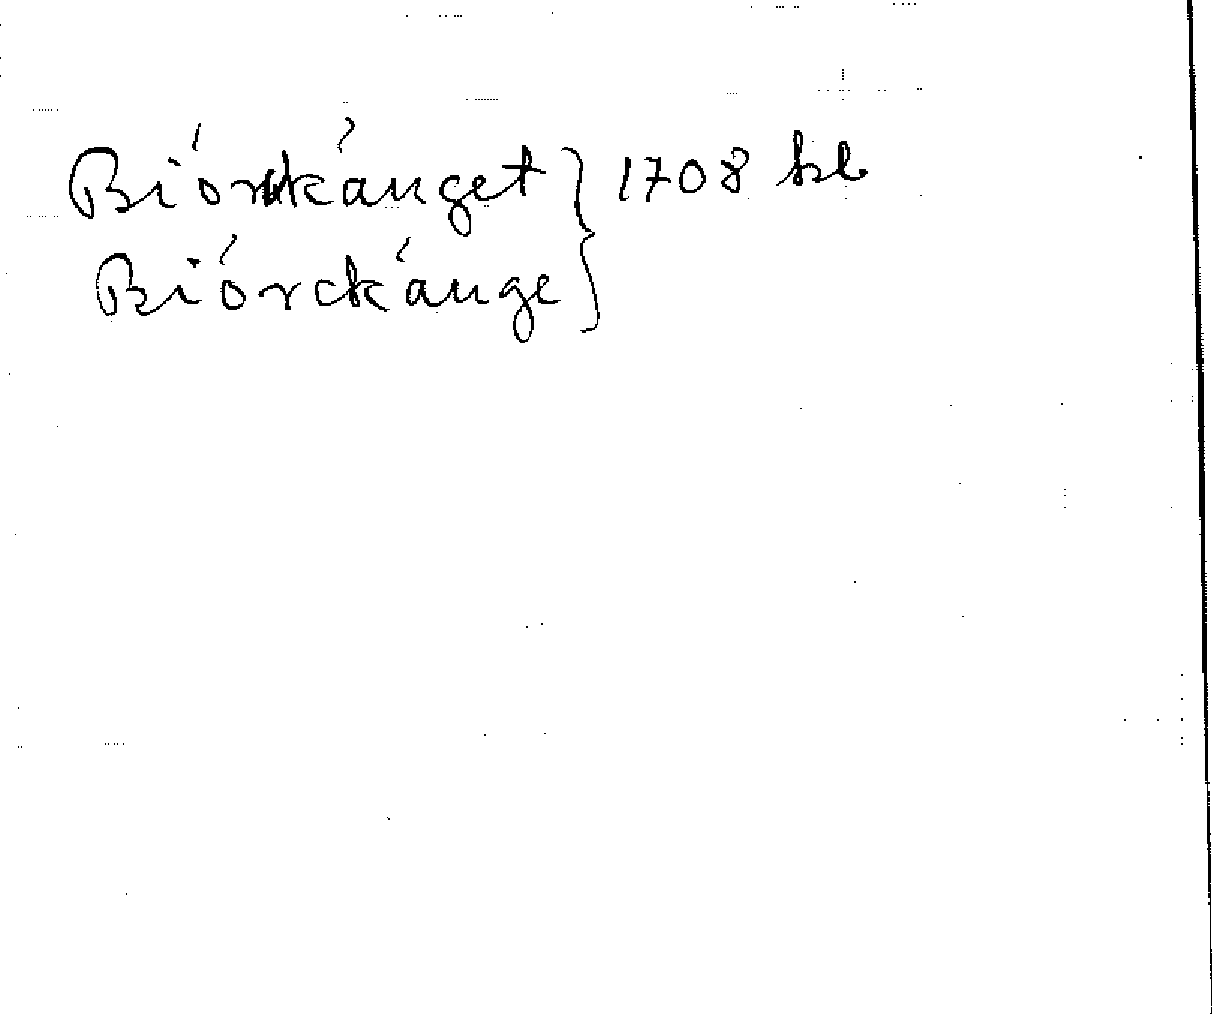 Biórckánget } 1708 kb
Biórckánge